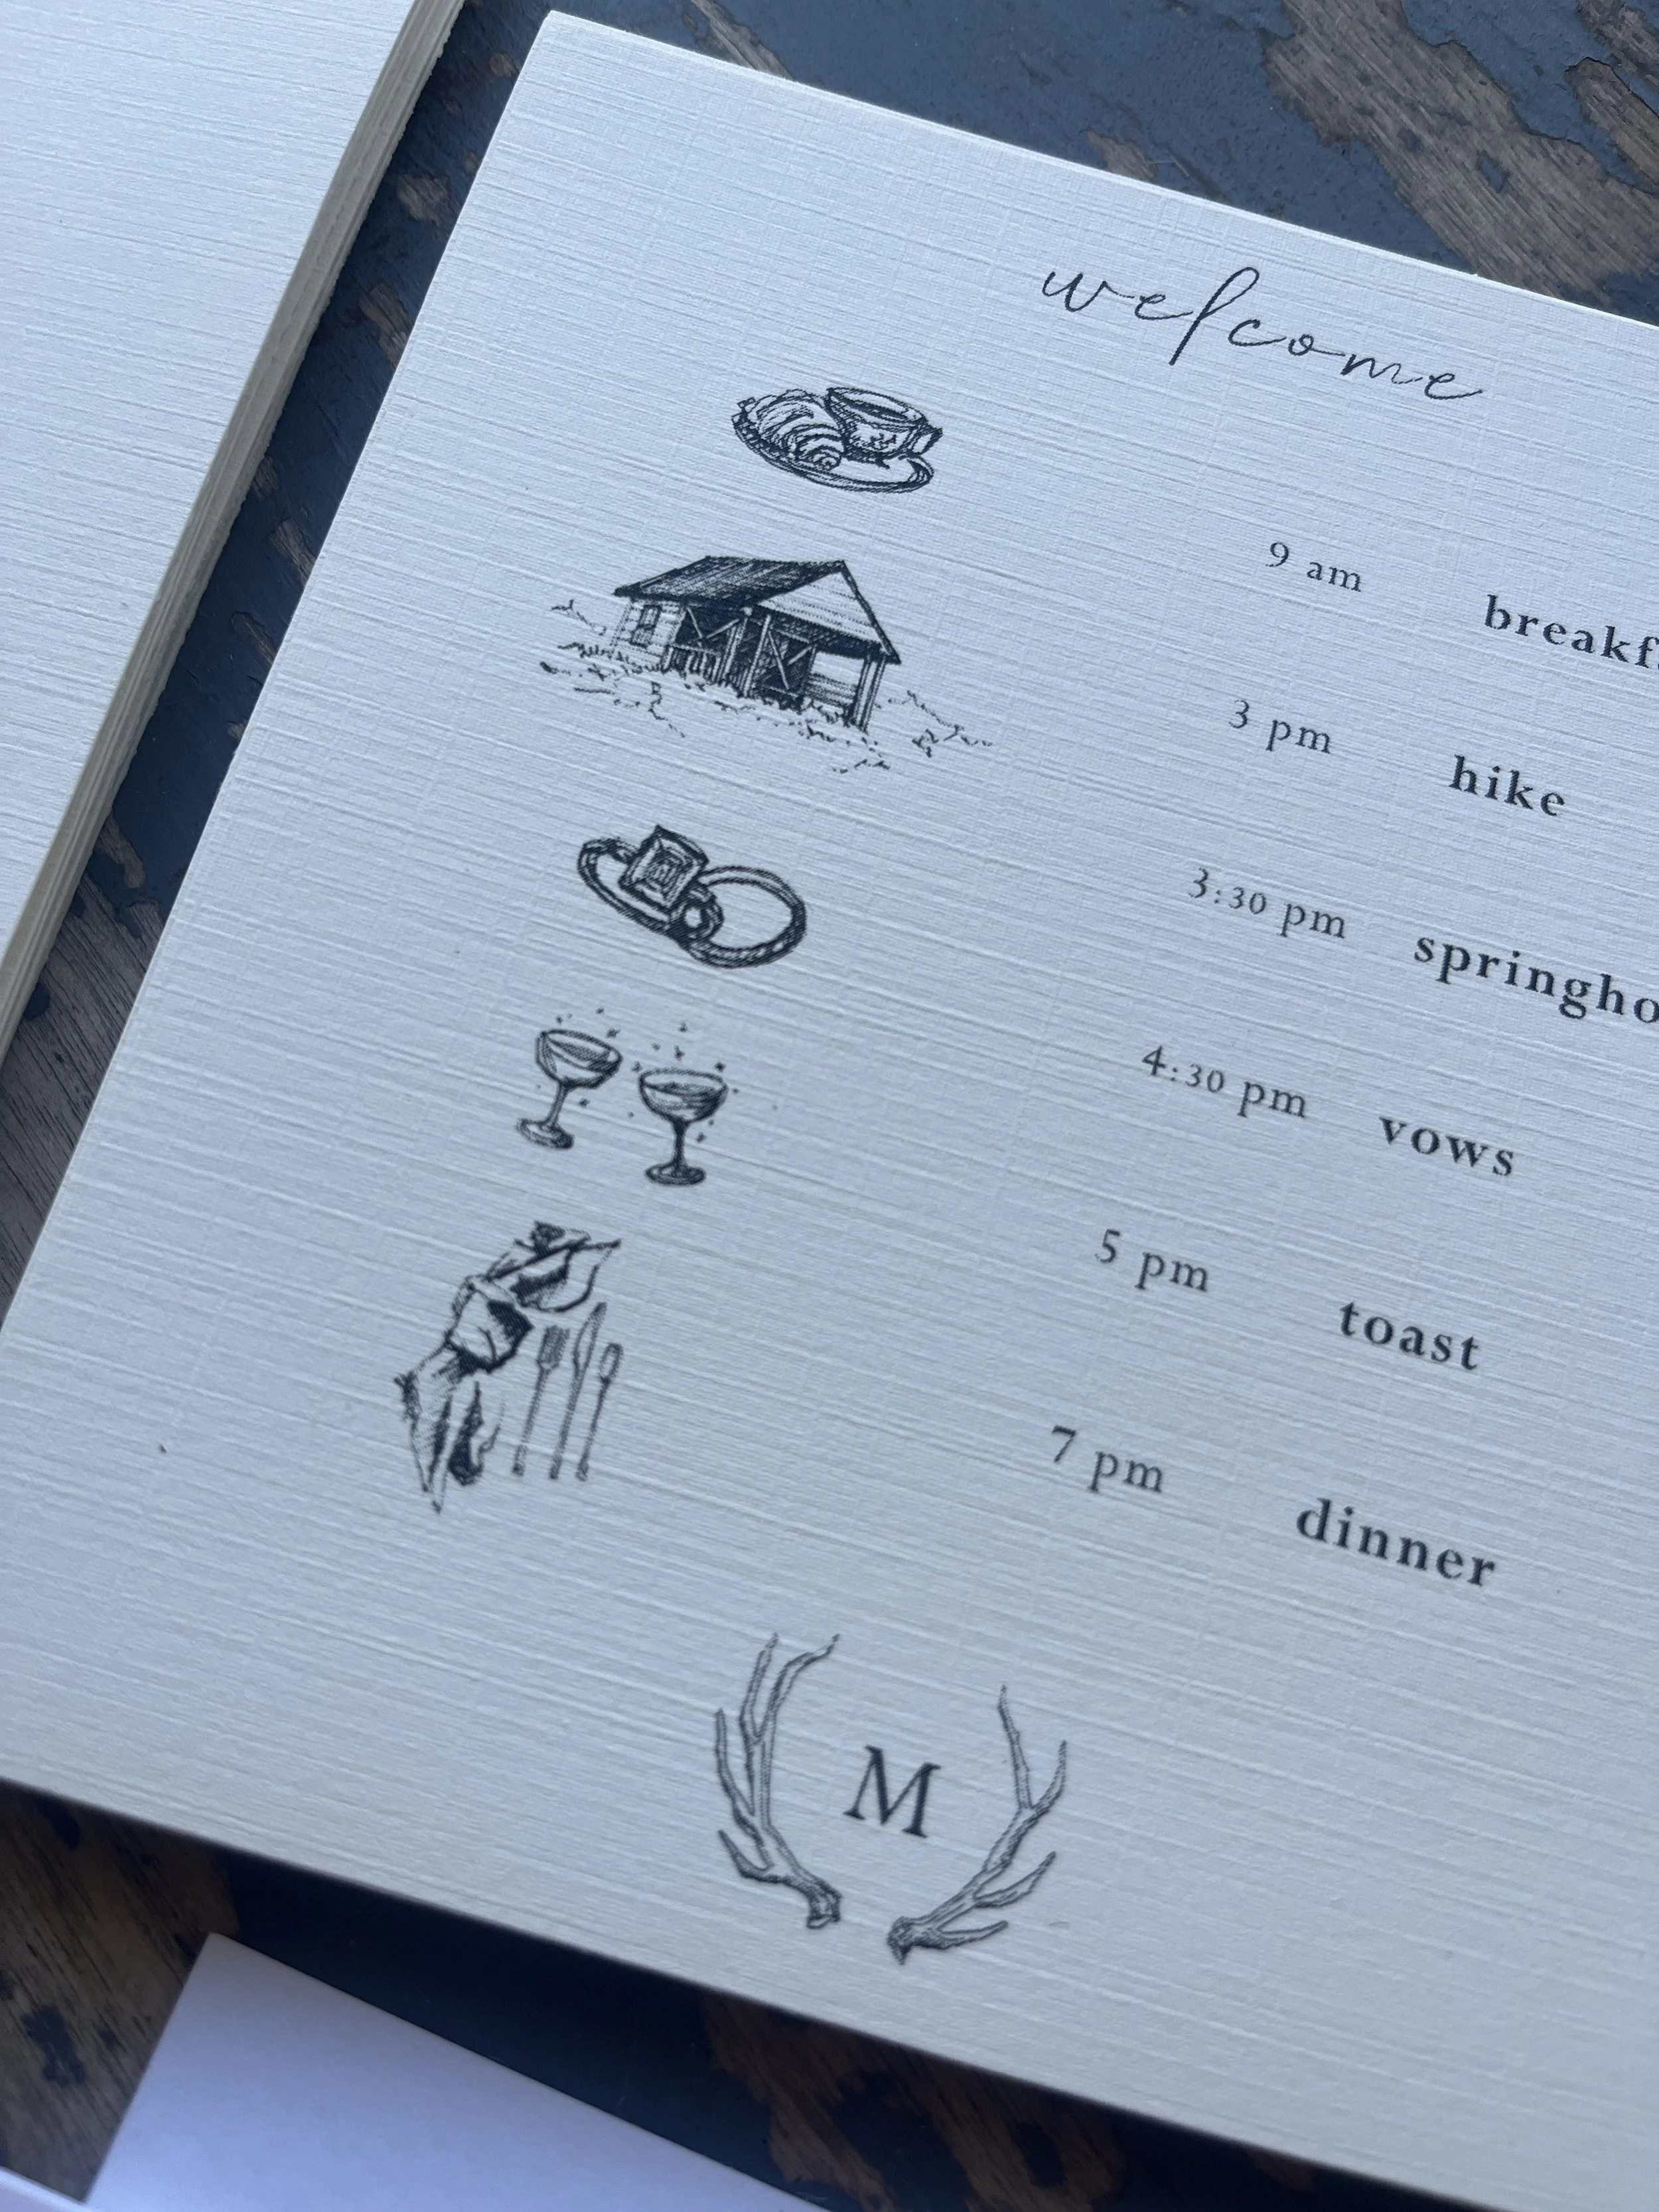 welcome
9 am breakf
3 pm hike
3:30 pm springho
4:30 pm vows
5 pm toast
7 pm dinner
M